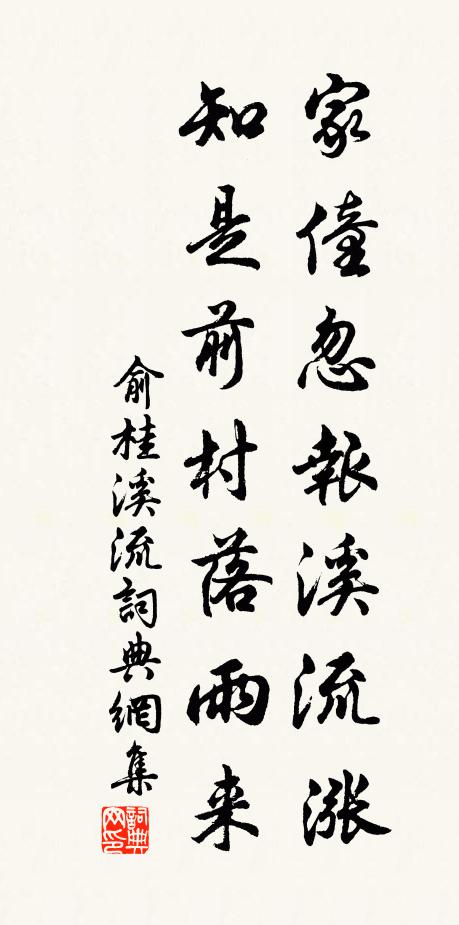 家僮忽報溪流漲
知是前村落雨来
俞桂溪流詞典網集
詞典网印